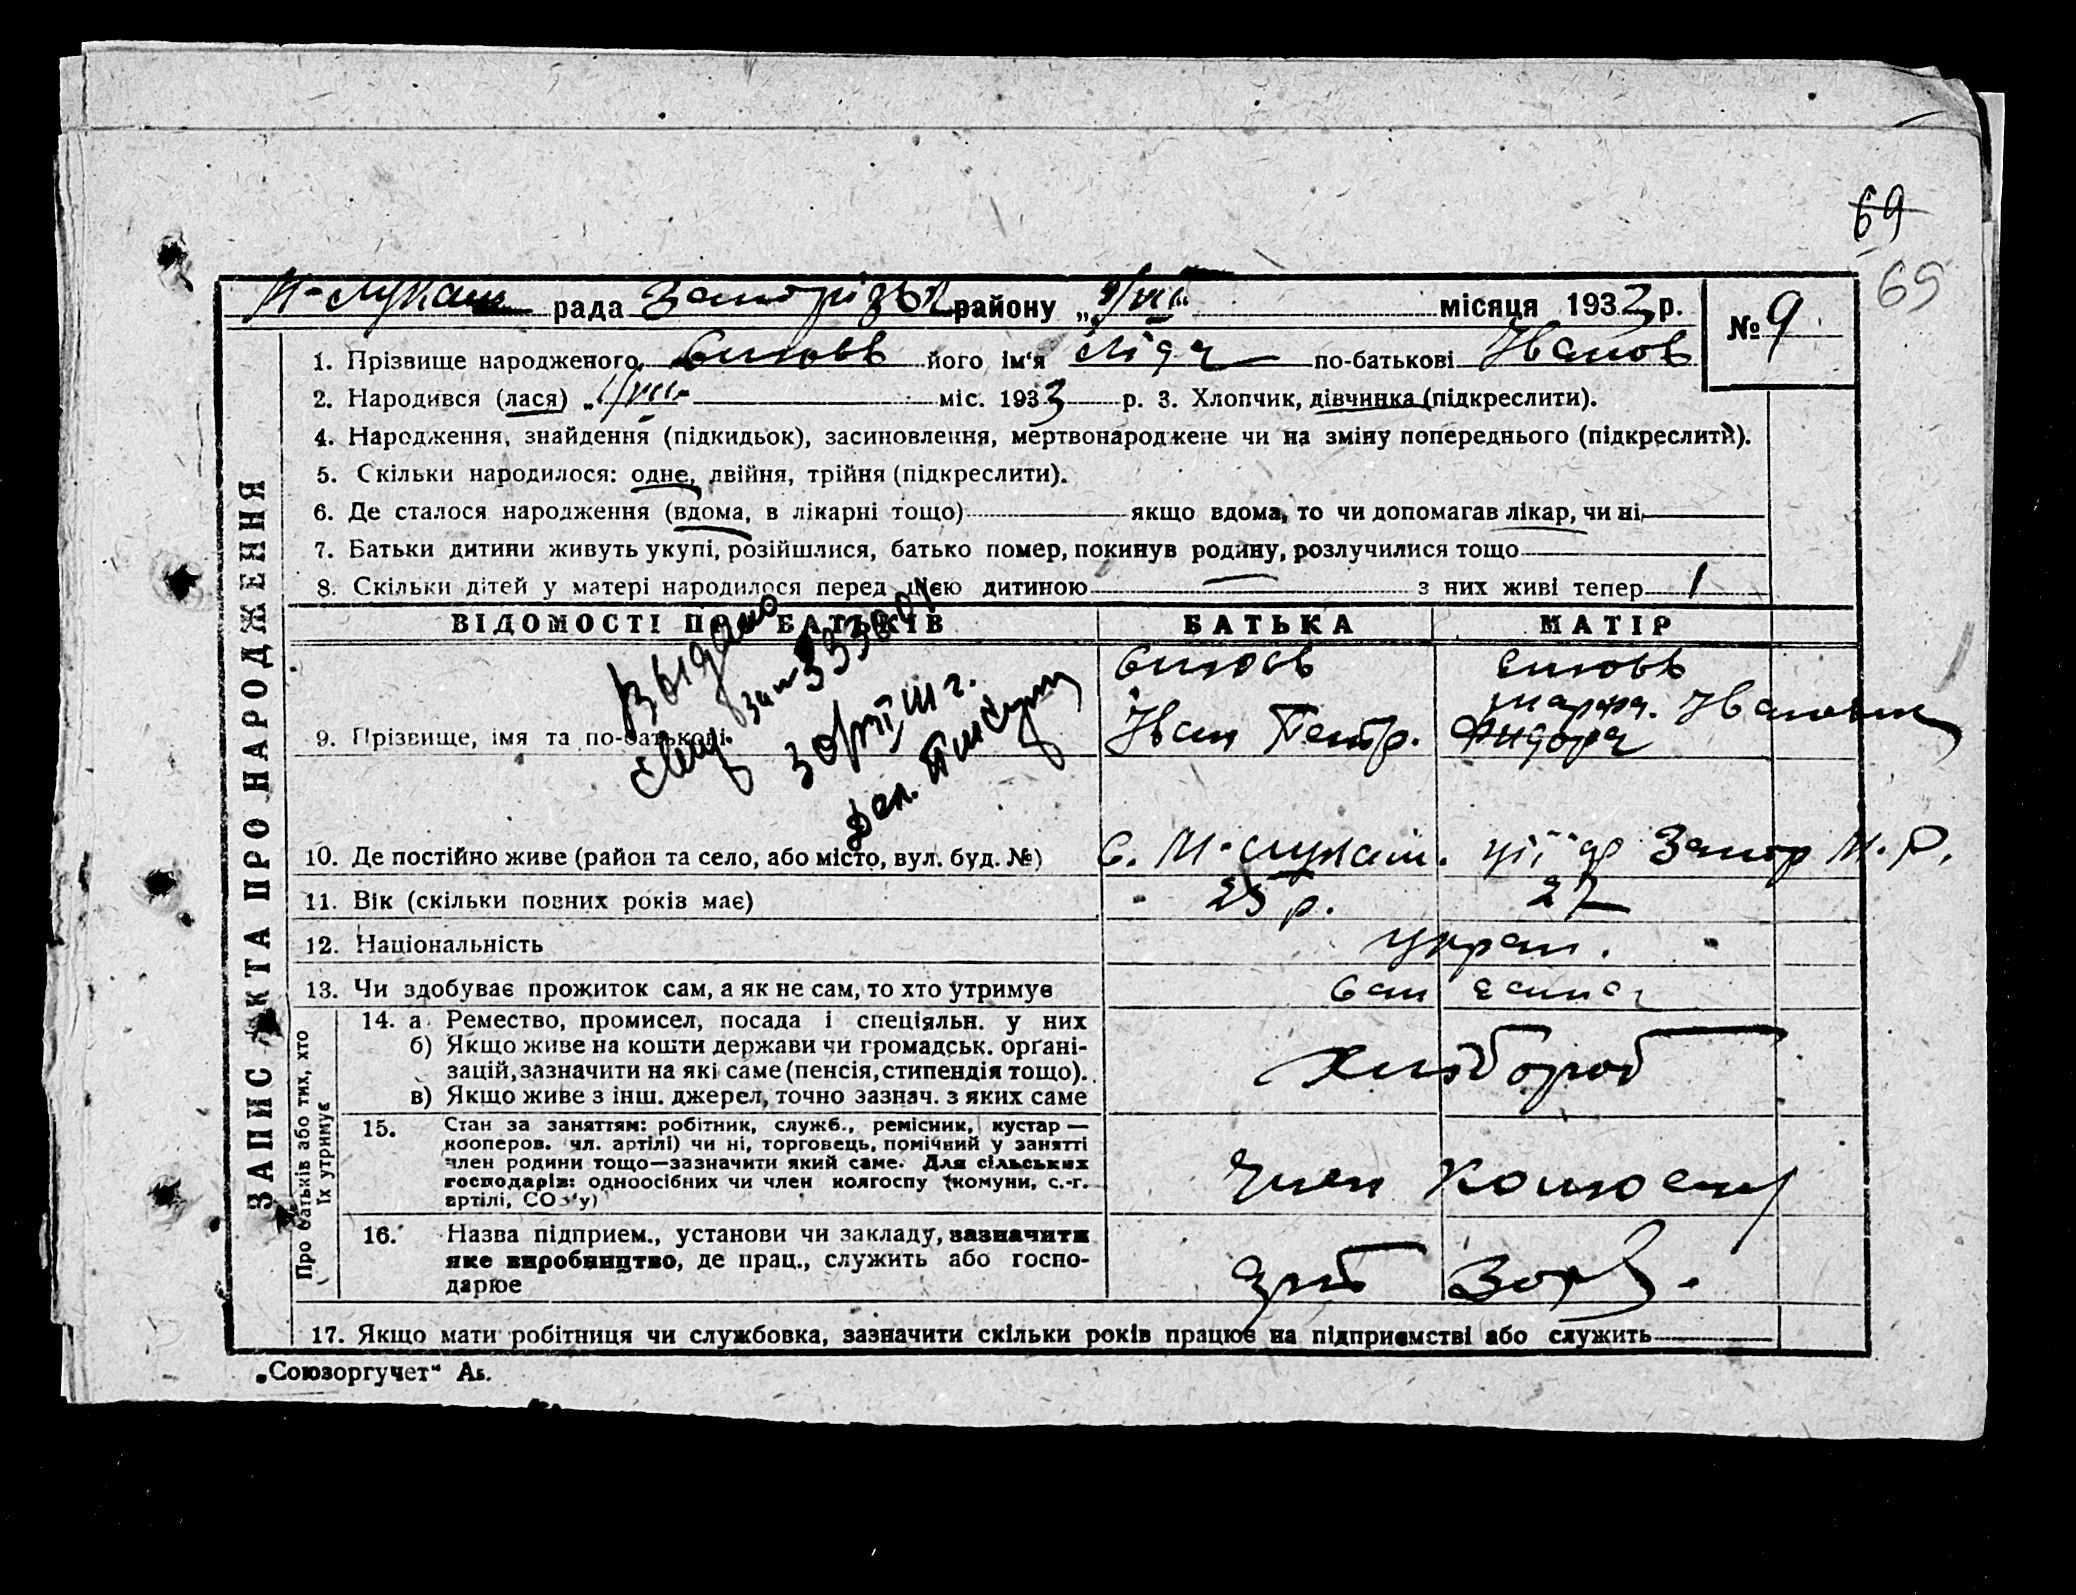 69
69
М-Лукаш рада Запорізьк району „9/VIII" місяця 1933 р. № 9
1. Прізвище народженого його ім'я Ліда по-батькові Іванов
2. Народився (лася) „1/VIII" міс. 1933 р. 3. Хлопчик, дівчинка (підкреслити).
4. Народження, знайдення (підкидьок), засиновлення, мертвонароджене чи на зміну попереднього (підкреслити).
5. Скільки народилося: одне, двійня, трійня (підкреслити).
6. Де сталося народження (вдома, в лікарні тощо) якщо вдома, то чи допомагав лікар, чи ні,
7. Батьки дитини живуть укупі, розійшлися, батько помер, покинув родину, розлучилися тощо
8. Скільки дітей у матері народилося перед цією дитиною з них живі тепер 1
ВІДОМОСТІ ПРО БАТЬКІВ БАТЬКА МАТІР
Марфа Іванівна
9. Прізвище, імя та по-батькові Іван Петр.
Выдано
10. Де постійно живе (район та село, або місто, вул. буд. №) С. М-Лукаш. Запор М. Р.
11. Вік (скільки повних років має) 25 р. 27
12. Національність Украл.
13. Чи здобуває прожиток сам, а як не сам, то хто утримує сам сама
14. а Ремество, промисел, посада і спеціяльн. у них
б) Якщо живе на кошти держави чи громадськ. органі-
зацій, зазначити на які саме (пенсія, стипендія тощо).
в) Якщо живе з інш. джерел, точно зазнач. з яких саме
Хлібороб
15. Стан за заняттям: робітник, служб., ремісник, кустар —
кооперов. чл. артілі) чи ні, торговець, помічний у занятті
член родини тощо—зазначити який саме. Для сільських
господарів: одноосібних чи член колгоспу (комуни, с.-г.
артілі, СОЗ'у)
Член
16. Назва підприєм., установи чи закладу, зазначити
яке виробництво, де прац., служить або госпо-
дарює
17. Якщо мати робітниця чи службовка, зазначити скільки років працює на підприємстві або служить
ЗАПИС АКТА ПРО НАРОДЖЕННЯ
Про батьків або тих, хто
їх утримує
„Союзоргучет" Аз.